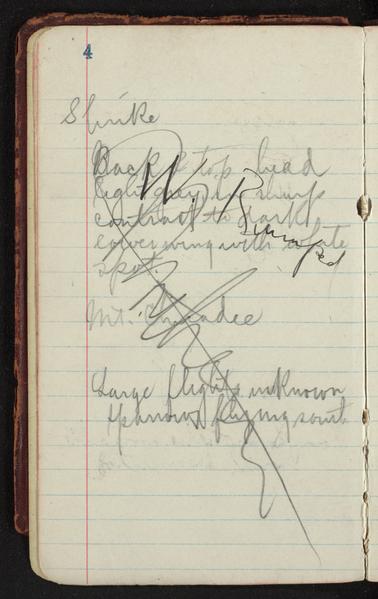 4
Shrike
Back & top head
light gray in sharp
contrast to dark
lower wing with white
spot.
Mt. Chickadee
Large flights unknown
sparrows flying south